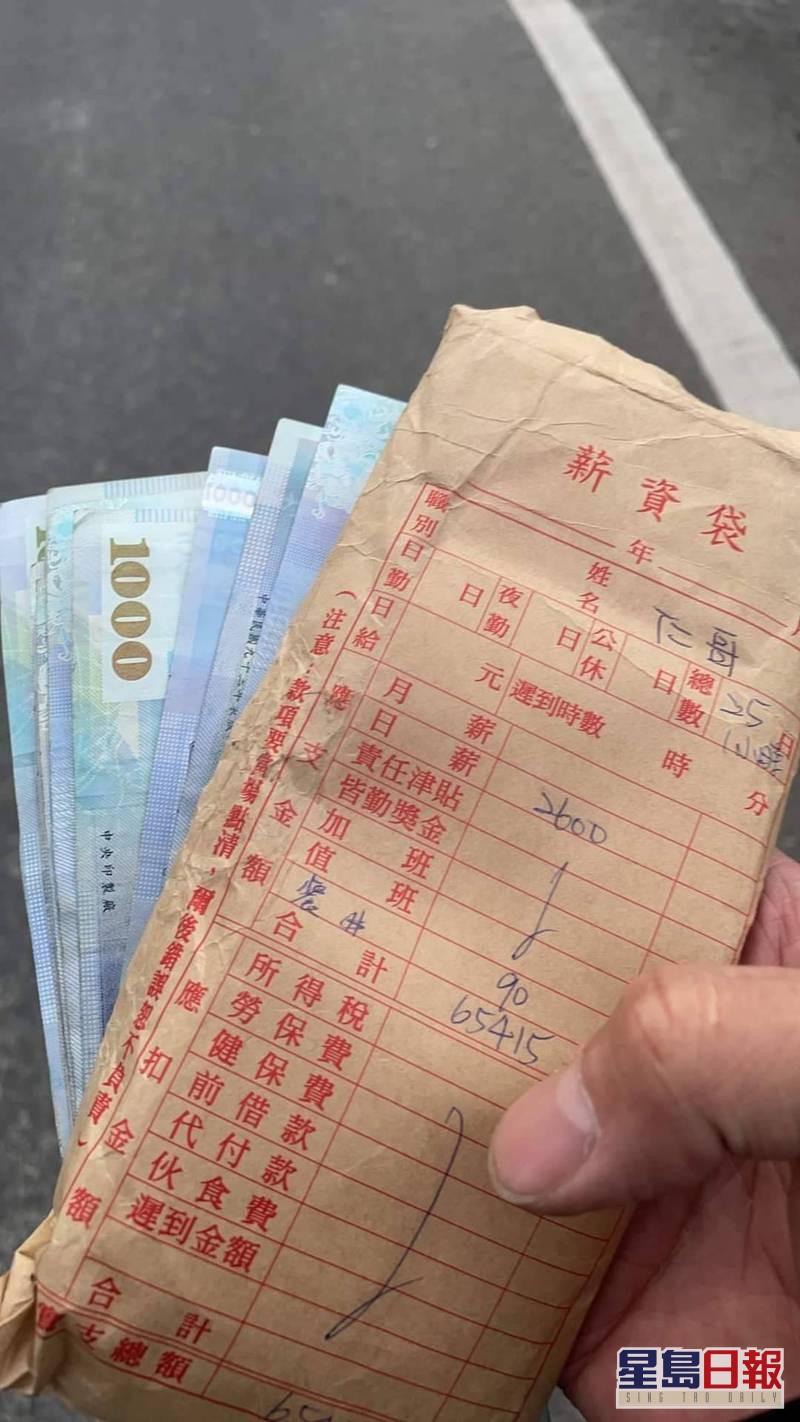 薪資袋
年
職別
姓名
日勤
日
夜勤
日
公休
日
總數
25
日
日給
元
遲到時數
時
分
(注意:款項要當場點清,爾後錯誤恕不負責)
應支金額
月薪
日薪
2600
責任津貼
皆勤獎金
加班
值班
90
合計
65415
應扣金額
所得稅
勞保費
健保費
前借款
代付款
伙食費
遲到金額
合計
實支總額
1000
1000
中華民國九十三年
中央印製廠
星島日報
SING TAO DAILY